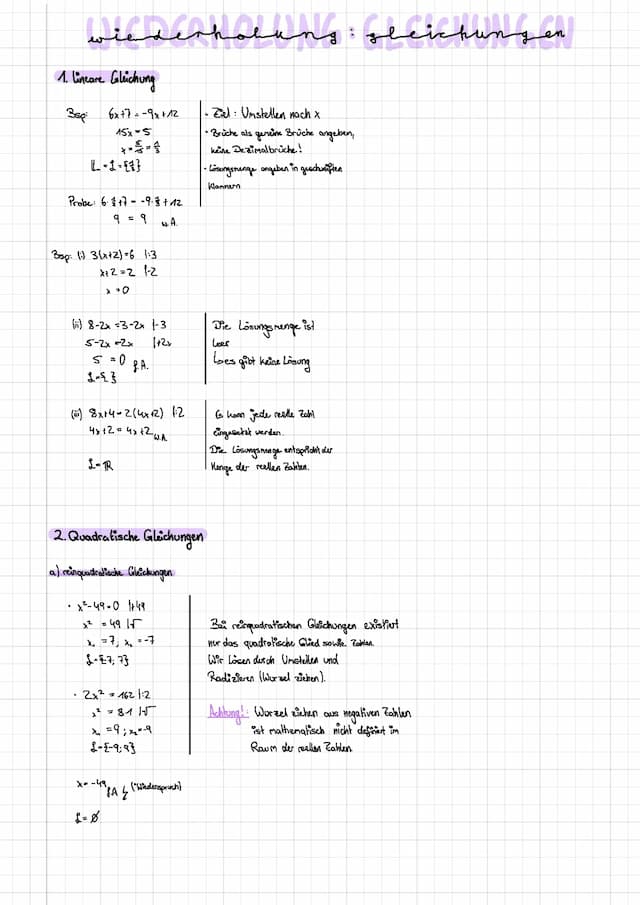 WIEDERHOLUNG: GLEICHUNGEN
wiederholung: gleichungen
1. lineare Gleichung
Bsp: 6x+7=-9x+12
15x=5
x=5/15=1/3
L = 𝕃 = {1/3}
Probe: 6·1/3+7=-9·1/3+12
9 = 9 w.A.
- Ziel: Umstellen nach x
• Brüche als gemeine Brüche angeben,
keine Dezimalbrüche!
- Lösungsmenge angeben in geschweiften
Klammern
Bsp: (i) 3(x+2)=6 |:3
x+2=2 |-2
x=0
(ii) 8-2x=3-2x |-3
5-2x=-2x |+2x
5=0 f.A.
𝕃={ }
Die Lösungsmenge ist
leer
↳es gibt keine Lösung
(iii) 8x+4=2(4x+2) |:2
4x+2=4x+2 w.A.
𝕃=ℝ
Es kann jede reelle Zahl
eingesetzt werden.
Die Lösungsmenge entspricht der
Menge der reellen Zahlen.
2. Quadratische Gleichungen
a) reinquadratische Gleichungen
• x²-49=0 |+49
x² = 49 |√
x₁=7; x₂=-7
𝕃={-7; 7}
• 2x² = 162 |:2
x² = 81 |√
x₁=9; x₂=-9
𝕃={-9; 9}
Bei reinquadratischen Gleichungen existiert
nur das quadratische Glied sowie Zahlen.
Wir lösen durch Umstellen und
Radizieren (Wurzel ziehen).
Achtung!: Wurzel ziehen aus negativen Zahlen
ist mathematisch nicht definiert im
Raum der reellen Zahlen.
x=-49 fA ↯ ("Wiederspruch)
𝕃=Ø